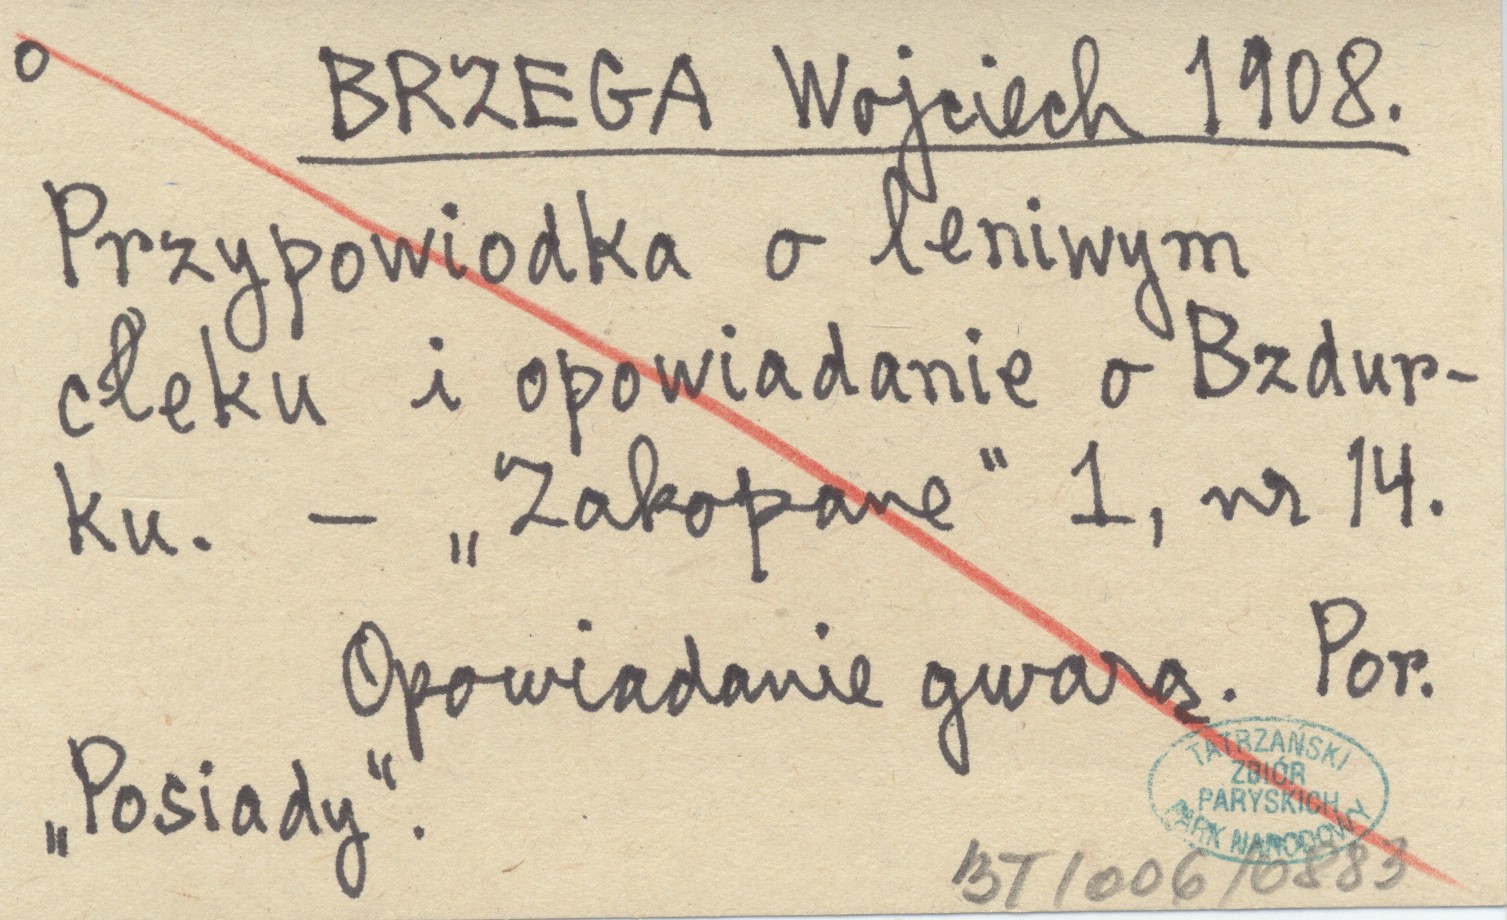 o
BRZEGA Wojciech 1908.
Przypowiodka o leniwym
cłeku i opowiadanie o Bzdur-
ku. — „Zakopane" 1, nr 14.
Opowiadanie gwarą. Por.
„Posiady".
TATRZAŃSKI
ZBIÓR
PARYSKICH
PARK NARODOWY
BT/006/0883